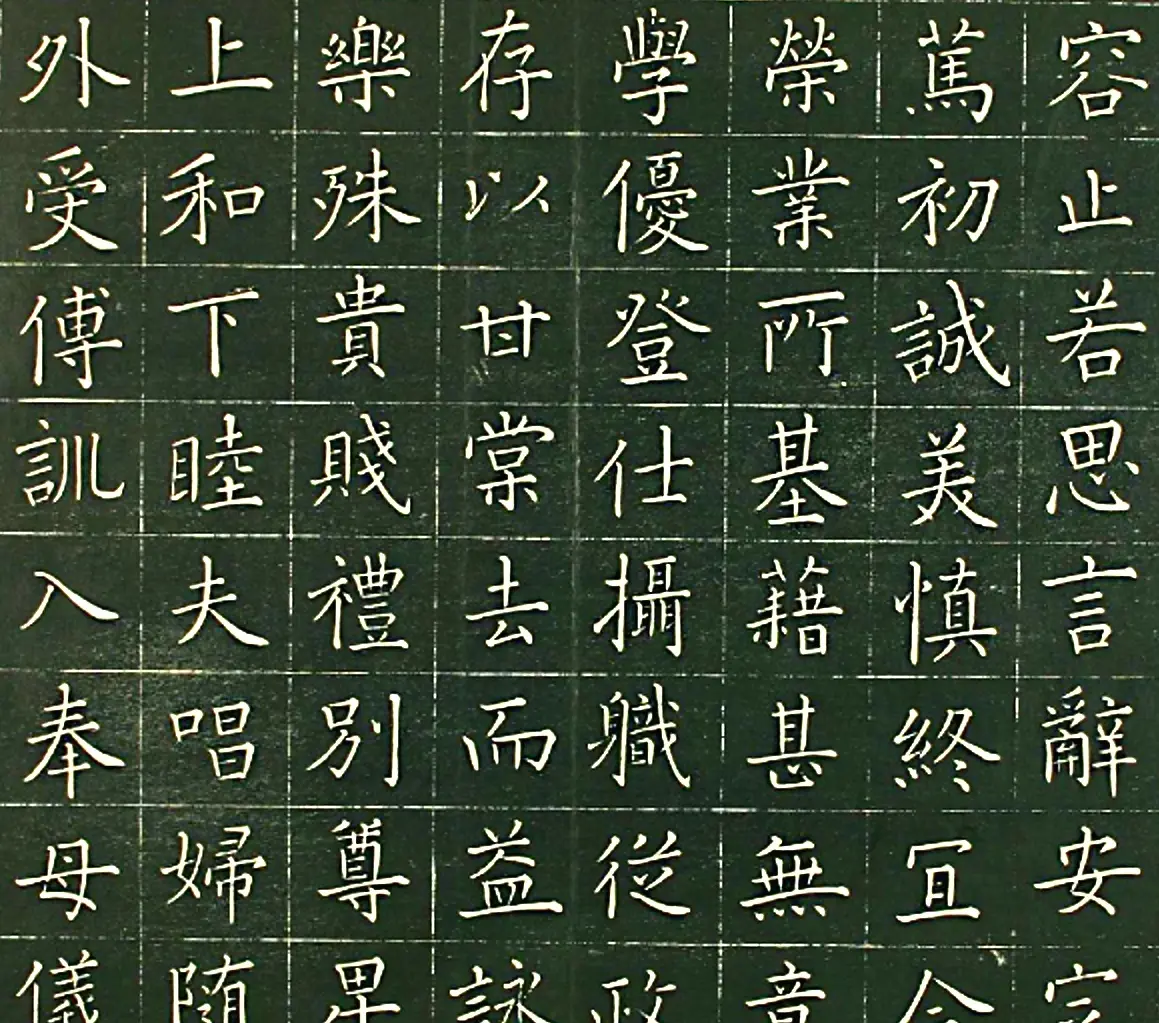 容止若思言辭安定
篤初誠美慎終宜令
榮業所基藉甚無竟
學優登仕攝職從政
存以甘棠去而益詠
樂殊貴賤禮別尊卑
上和下睦夫唱婦随
外受傅訓入奉母儀